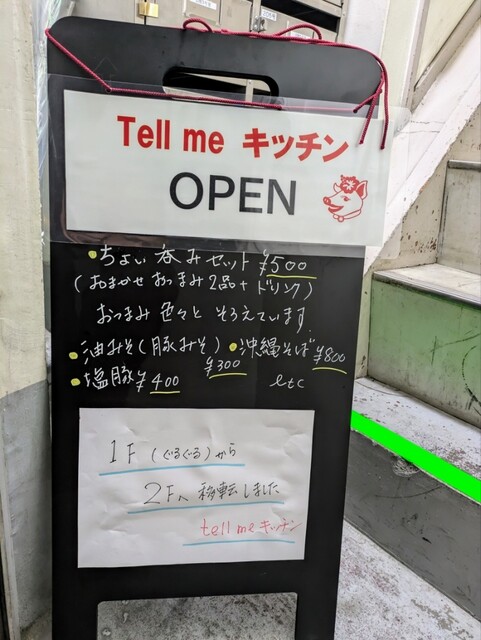 Tell me キッチン
OPEN
・ちょい呑みセット ¥500
(おまかせおつまみ2品+ドリンク)
おつまみ色々とそろえています。
・油みそ(豚みそ) ¥300
・沖縄そば ¥800
・塩豚 ¥400
etc
1F (ぐるぐる)から
2Fへ移転しました
tell me キッチン